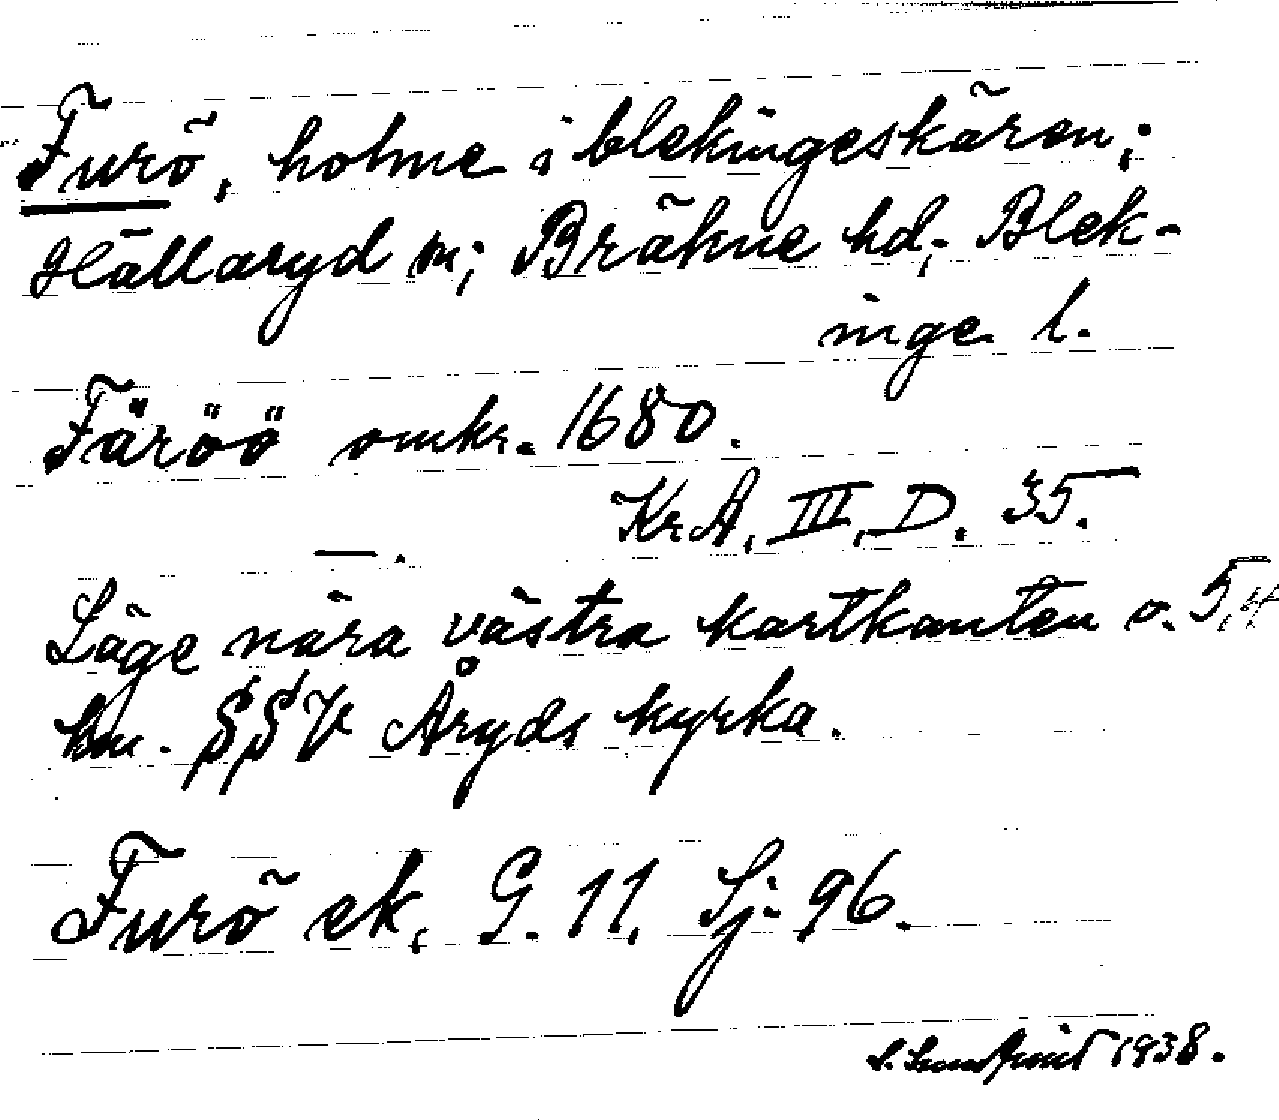 Furö, holme i blekingeskären;
Hällaryd sn; Bräkne hd; Blek-
inge l.
Färöö omkr. 1680.
Kr.A, III, D. 35.
—.
Läge nära västra kartkanten o. 5,4
km. SSV Åryds kyrka.
Furö ek, G. 11, Sj. 96.
1938.